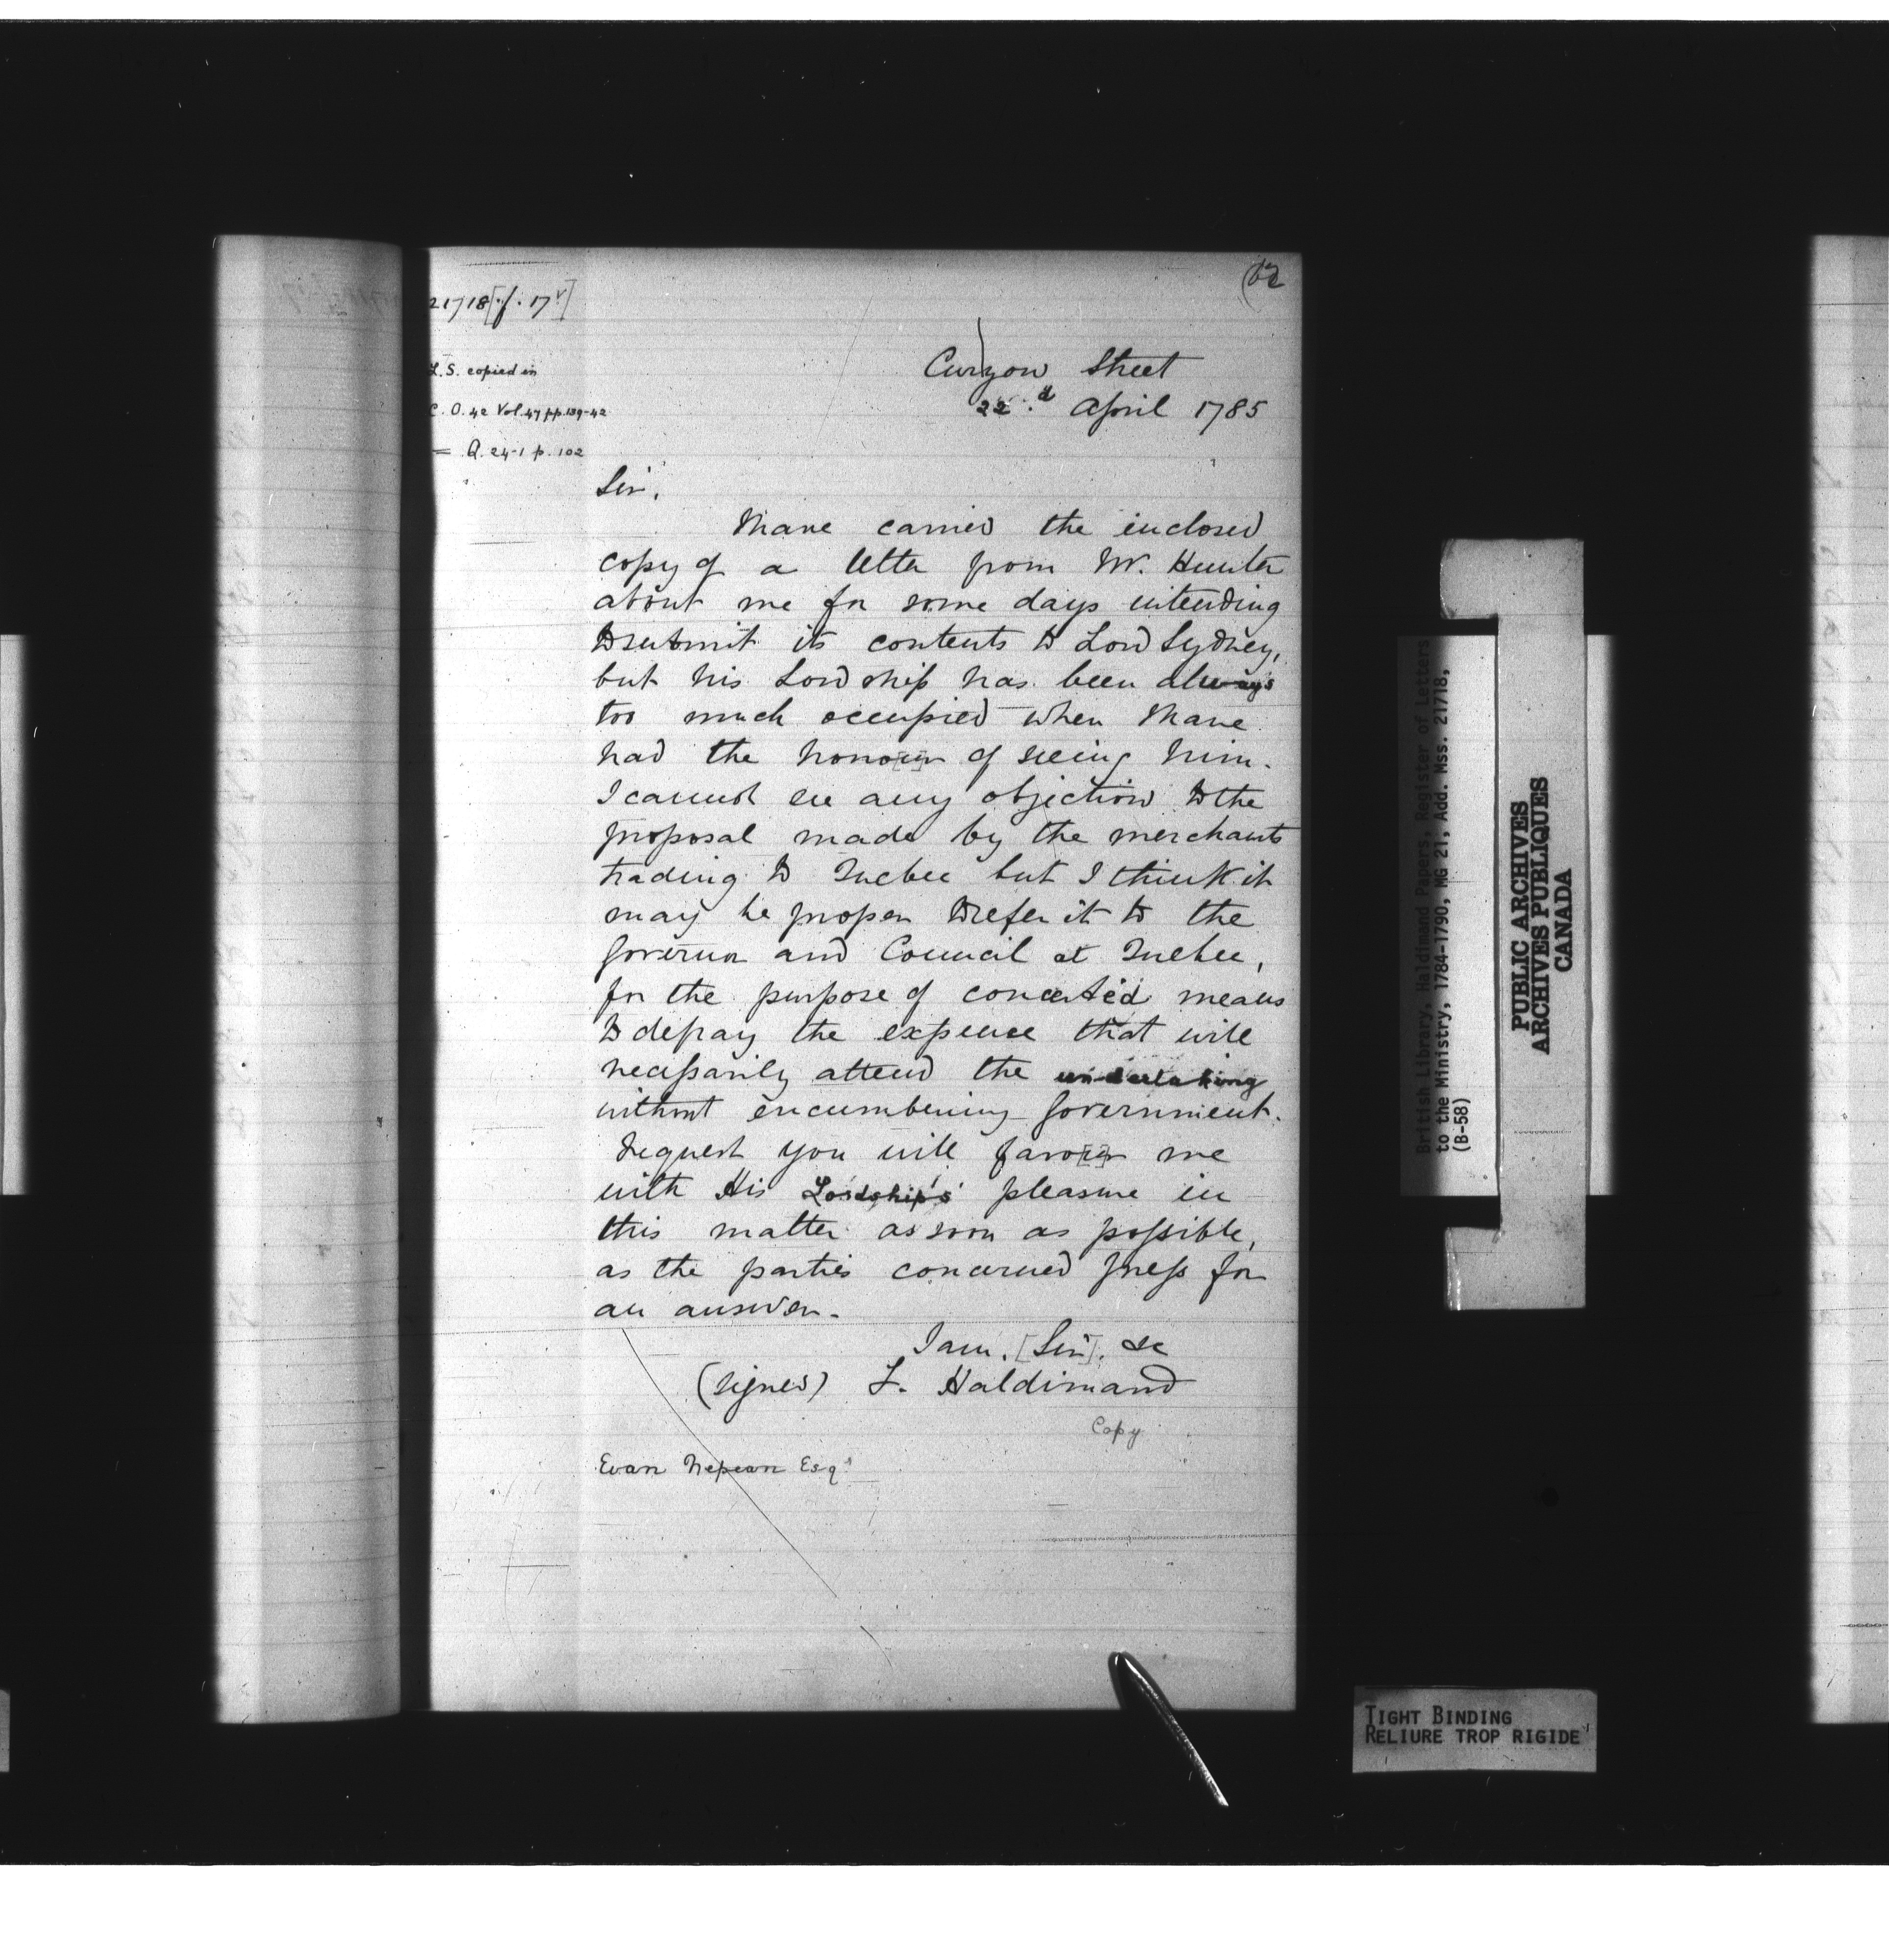 62
21718 [f. 17v]
L.S. copied in
C.O. 42 Vol. 47 pp. 139-42
= Q. 24-1 p. 102
Curzon Street
22.d April 1785
Sir,
I have carried the inclosed
copy of a letter from Mr. Hunter
about me for some days intending
to submit its contents to Lord Sydney,
but his Lordship has been always
too much occupied when I have
had the hono[u]r of seeing him.
I cannot see any objection to the
proposal made by the merchants
trading to Quebec but I think it
may be proper to refer it to the
Governor and Council at Quebec,
for the purpose of concerted means
to defray the expence that will
necessarily attend the undertaking
without encumbering Government.
I request you will favo[u]r me
with His Lordship's pleasure in
this matter as soon as possible,
as the parties concerned press for
an answer.
I am, [Sir], &c
(signed) F. Haldimand
Copy
Evan Nepean Esqr
British Library, Haldimand Papers, Register of Letters
to the Ministry, 1784-1790, MG 21, Add. Mss. 21718,
(B-58)
PUBLIC ARCHIVES
ARCHIVES PUBLIQUES
CANADA
TIGHT BINDING
RELIURE TROP RIGIDE